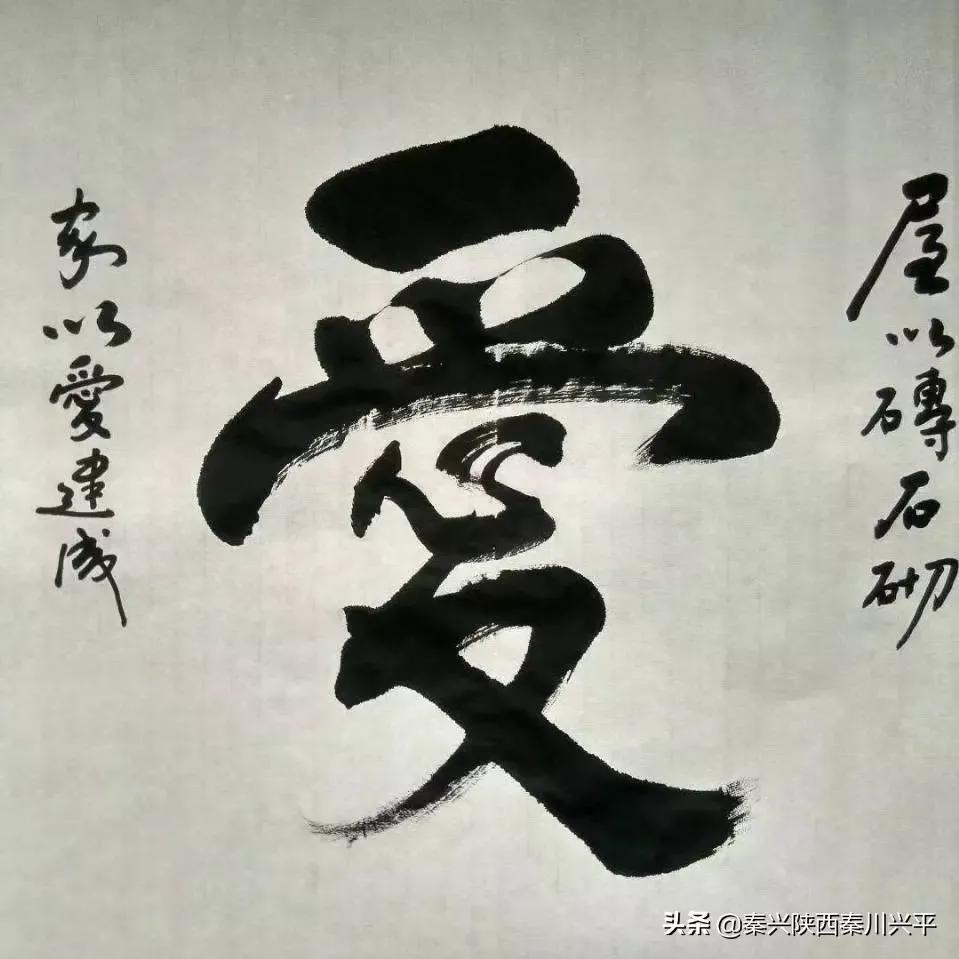 屋以磚石砌
愛
家以愛建成
头条 @秦兴陕西秦川兴平